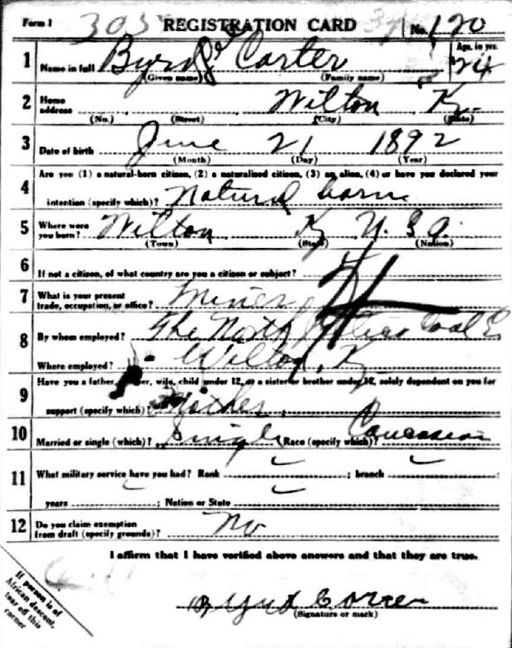 Form 1 305 REGISTRATION CARD No. 120
1 Name in full Byrd Carter Age, in yrs. 24
(Given name) (Family name)
2 Home address Wilton Ky.
(No.) (Street) (City) (State)
3 Date of birth June 21 1892
(Month) (Day) (Year)
4 Are you (1) a natural-born citizen, (2) a naturalized citizen, (3) an alien, (4) or have you declared your
intention (specify which)? Natural born
5 Where were you born? Wilton Ky U.S.A.
(Town) (State) (Nation)
6 If not a citizen, of what country are you a citizen or subject?
7 What is your present trade, occupation, or office? Miner
8 By whom employed? The North Coal
Where employed? Wilton, Ky
9 Have you a father, wife, child under 12, or a sister or brother under 12, solely dependent on you for
support (specify which)? Mother.
10 Married or single (which)? Single Race (specify which)? Caucasian
11 What military service have you had? Rank ; branch
years ; Nation or State
12 Do you claim exemption from draft (specify grounds)? No
I affirm that I have verified above answers and that they are true.
If person is of
African descent,
tear off this
corner
Byrd Carter
(Signature or mark)